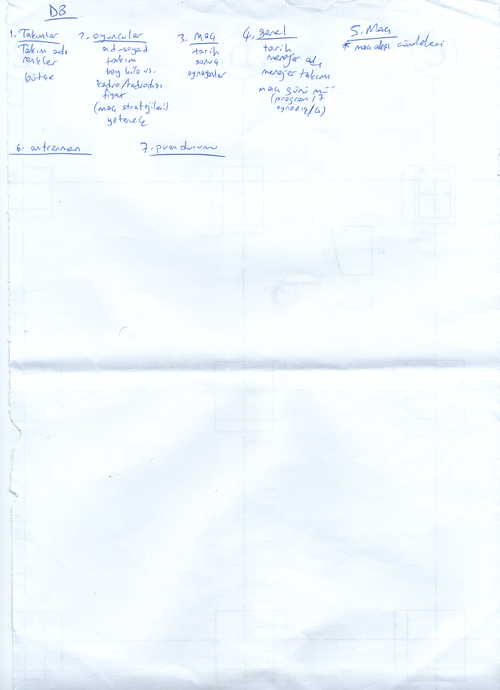 DB
1. Takımlar
Takım adı
renkler
bütçe
2. oyuncular
ad-soyad
takım
boy kilo vs.
kadro/kadrodışı
fiyat
(maç stratejileri)
yetenek
3. Maç
tarih
sonuç
oynayanlar
4. genel
tarih
menejer adı
menejer takımı
maç günü mü
(program/7
5. Maç
* maç akışı cümleleri
6. antrenman
7. puan durumu